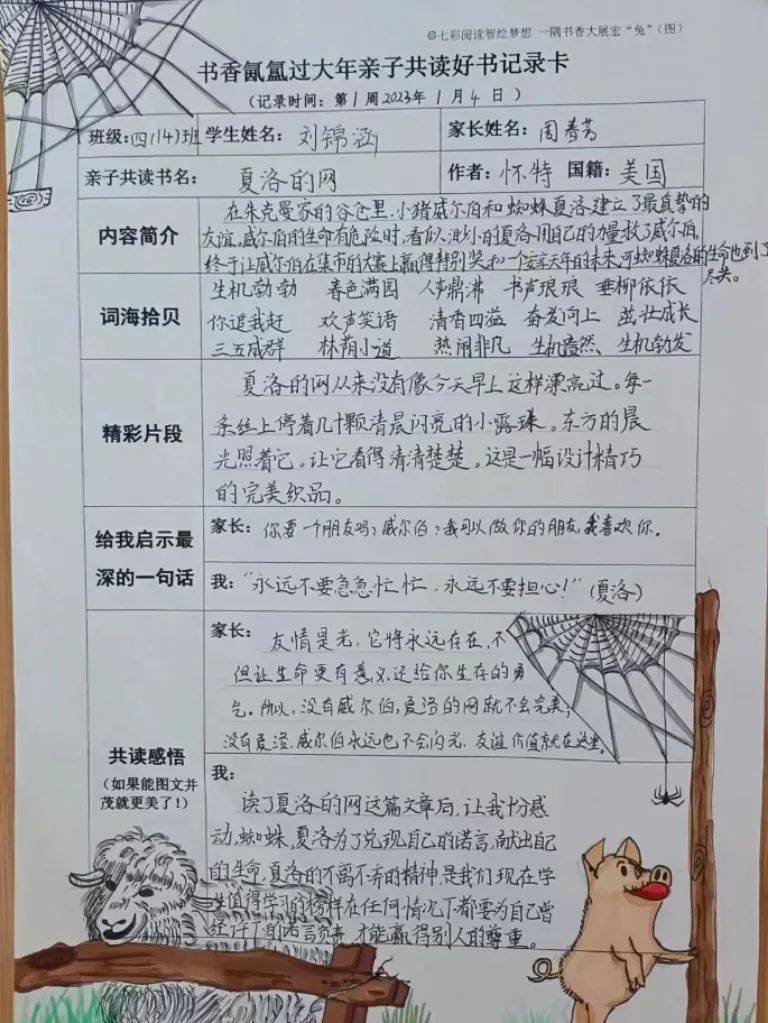 七彩阅读智绘梦想 一隅书香大展宏“兔”(图)
书香氤氲过大年亲子共读好书记录卡
(记录时间：第1周2023年1月4日)
班级：四(14)班 学生姓名：刘锦涵 家长姓名：周春芳
亲子共读书名：夏洛的网 作者：怀特 国籍：美国
内容简介
在朱克曼家的谷仓里,小猪威尔伯和蜘蛛夏洛建立了最真挚的
友谊。威尔伯的生命有危险时,看似渺小的夏洛用自己的力量救了威尔伯,
终于让威尔伯在集市的大赛上赢得特别奖和一个安享天年的未来,可蜘蛛夏洛的生命也到了
尽头。
词海拾贝
生机勃勃 春色满园 人声鼎沸 书声琅琅 垂柳依依
你追我赶 欢声笑语 清香四溢 奋发向上 茁壮成长
三五成群 林荫小道 热闹非凡 生机盎然 生机勃发
精彩片段
夏洛的网从来没有像今天早上这样漂亮过。每一
条丝上停着几十颗清晨闪亮的小露珠。东方的晨
光照着它。让它看得清清楚楚。这是一幅设计精巧
的完美织品。
给我启示最
深的一句话
家长：你要一个朋友吗?威尔伯?我可以做你的朋友,我喜欢你。
我：“永远不要急急忙忙,永远不要担心!”(夏洛)
共读感悟
(如果能图文并
茂就更美了!)
家长：友情是光,它将永远存在,不
但让生命更有意义,还给你生存的勇
气。所以,没有威尔伯,夏洛的网就不会完美;
没有夏洛,威尔伯永远也不会闪光,友谊价值就在这里。
我：
读了夏洛的网这篇文章后,让我十分感
动,蜘蛛,夏洛为了兑现自己的诺言,献出自己
的生命,夏洛的不离不弃的精神,是我们现在学
生值得学习的榜样在任何情况下都要为自己曾
经许下的诺言负责,才能赢得别人的尊重。